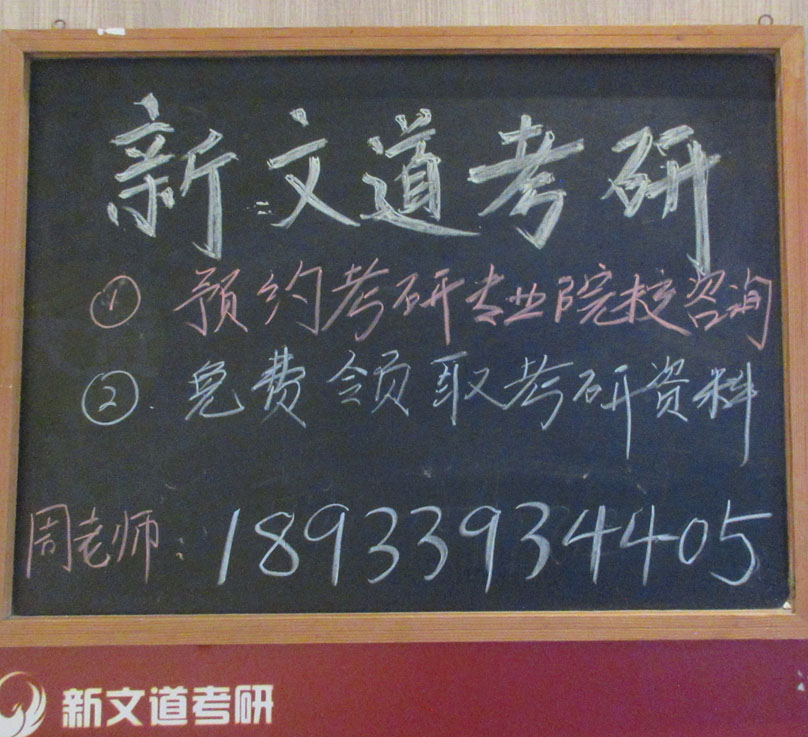 新文道考研
① 预约考研专业院校咨询
② 免费领取考研资料
周老师：18933934405
新文道考研